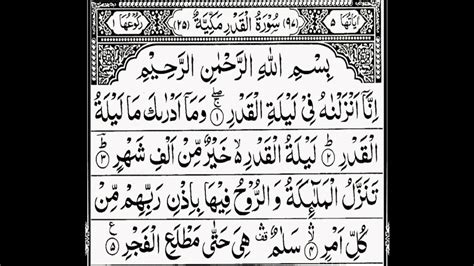 اٰيَاتُهَا ٥ (٩٧) سُوْرَةُ الْقَدْرِ مَكِّيَّةٌ (٢٥) رُكُوْعُهَا ١
بِسْمِ اللّٰهِ الرَّحْمٰنِ الرَّحِيْمِ
اِنَّاۤ اَنْزَلْنٰهُ فِيْ لَيْلَةِ الْقَدْرِ ۚۖ ١ وَمَاۤ اَدْرٰىكَ مَا لَيْلَةُ
الْقَدْرِ ؕ ٢ لَيْلَةُ الْقَدْرِ ۙ۬ خَيْرٌ مِّنْ اَلْفِ شَهْرٍ ؕ ٣
تَنَزَّلُ الْمَلٰٓئِكَةُ وَالرُّوْحُ فِيْهَا بِاِذْنِ رَبِّهِمْ ۚ مِنْ
كُلِّ اَمْرٍ ۙۛ ٤ سَلٰمٌ ۛ۫ هِيَ حَتّٰى مَطْلَعِ الْفَجْرِ ٥ ع